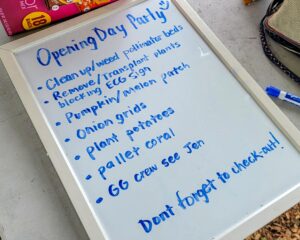 18
Opening Day Party
• Clean up/weed pollinator beds
• Remove/Transplant plants
blocking ECG sign
• Pumpkin/melon patch
• Onion grids
• Plant potatoes
• pallet coral
• GG crew see Jen
Dont forget to check-out!